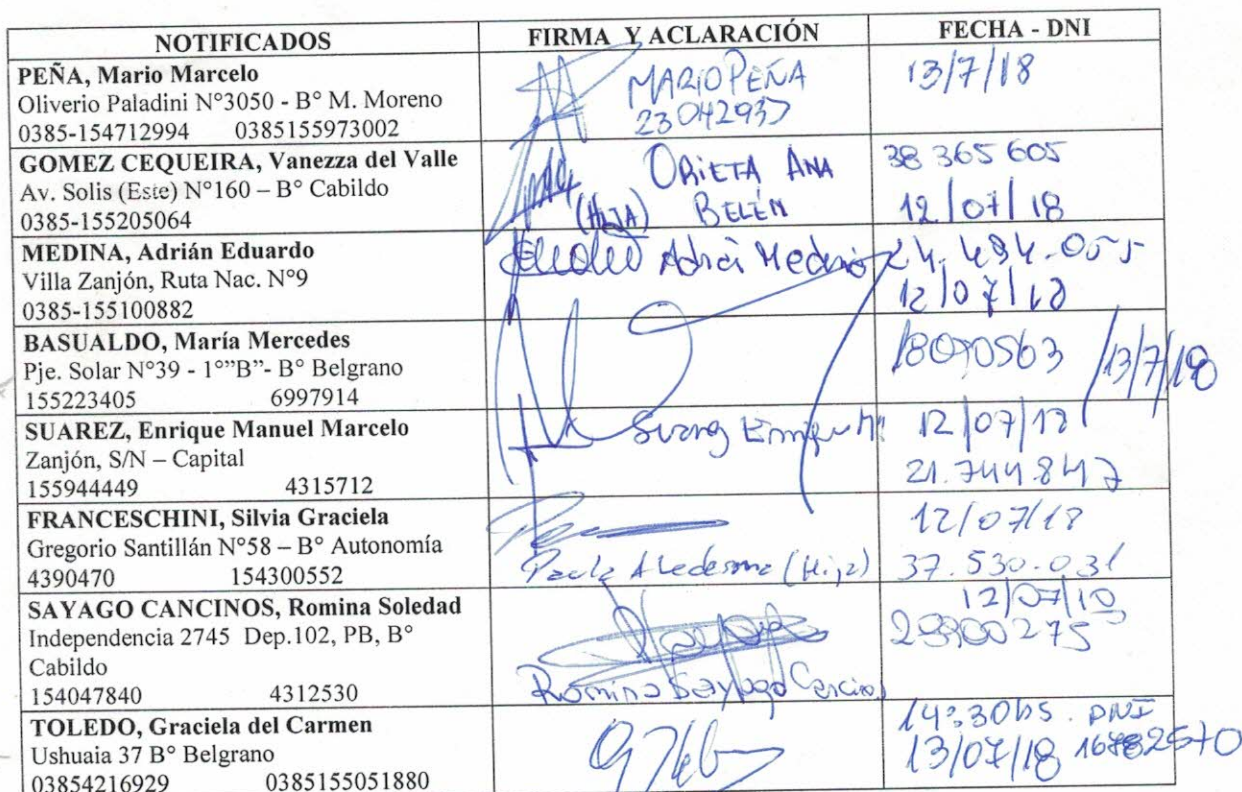 NOTIFICADOS FIRMA Y ACLARACIÓN FECHA - DNI
PEÑA, Mario Marcelo
Oliverio Paladini N°3050 - B° M. Moreno
0385-154712994 0385155973002
MARIO PEÑA
23042937
13/7/18
GOMEZ CEQUEIRA, Vanezza del Valle
Av. Solis (Este) N°160 – B° Cabildo
0385-155205064
ORIETA ANA
(HIJA) BELÉN
38 365 605
12/07/18
MEDINA, Adrián Eduardo
Villa Zanjón, Ruta Nac. N°9
0385-155100882
Medina
24.494.055
12/07/18
BASUALDO, María Mercedes
Pje. Solar N°39 - 1°”B”- B° Belgrano
155223405 6997914
18070563 13/7/18
SUAREZ, Enrique Manuel Marcelo
Zanjón, S/N – Capital
155944449 4315712
12/07/18
21.744.847
FRANCESCHINI, Silvia Graciela
Gregorio Santillán N°58 – B° Autonomía
4390470 154300552
Paola A Ledesma (Hija)
12/07/18
37.530.031
SAYAGO CANCINOS, Romina Soledad
Independencia 2745 Dep.102, PB, B°
Cabildo
154047840 4312530
Romina Sayago Cancinos
12/07/18
TOLEDO, Graciela del Carmen
Ushuaia 37 B° Belgrano
03854216929 0385155051880
14:30hs. DNI
13/07/18 16782570